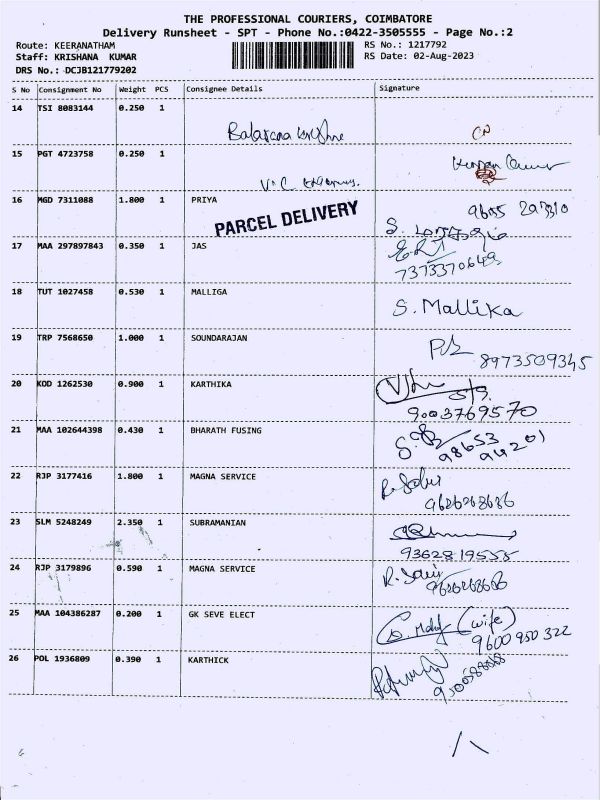 THE PROFESSIONAL COURIERS, COIMBATORE
Delivery Runsheet - SPT - Phone No.:0422-3505555 - Page No.:2
Route: KEERANATHAM
RS No.: 1217792
Staff: KRISHANA KUMAR
RS Date: 02-Aug-2023
DRS No.: DCJB121779202
S No Consignment No Weight PCS Consignee Details Signature
14 TSI 8083144 0.250 1
15 PGT 4723758 0.250 1
16 MGD 7311088 1.800 1 PRIYA
PARCEL DELIVERY
17 MAA 297897843 0.350 1 JAS
7373370649
18 TUT 1027458 0.530 1 MALLIGA S. Mallika
19 TRP 7568650 1.000 1 SOUNDARAJAN
8973509345
20 KOD 1262530 0.900 1 KARTHIKA
9003769570
21 MAA 102644398 0.430 1 BHARATH FUSING
98653
94201
22 RJP 3177416 1.800 1 MAGNA SERVICE
9626268686
23 SLM 5248249 2.350 1 SUBRAMANIAN
9362819555
24 RJP 3179896 0.590 1 MAGNA SERVICE
25 MAA 104386287 0.200 1 GK SEVE ELECT (wife)
9600950322
26 POL 1936809 0.390 1 KARTHICK